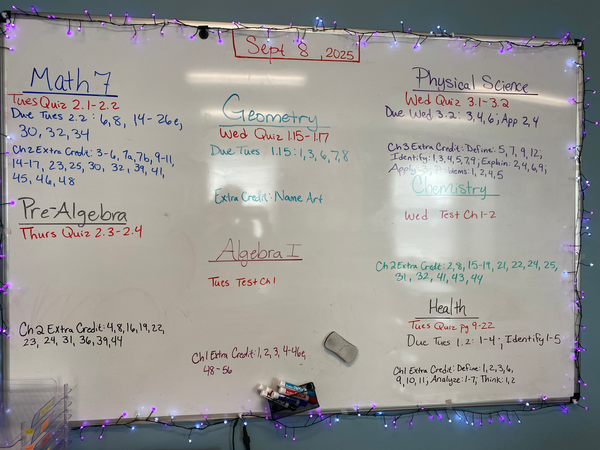 Sept 8, 2025
Math 7
Tues Quiz 2.1-2.2
Due Tues 2.2: 6,8, 14-26e,
30, 32, 34
Ch2 Extra Credit: 3-6, 7a, 7b, 9-11,
14-17, 23, 25, 30, 32, 39, 41,
45, 46, 48
Pre-Algebra
Thurs Quiz 2.3-2.4
Ch 2 Extra Credit: 4, 8, 16, 19, 22,
23, 24, 31, 36, 39, 44
Geometry
Wed Quiz 1.15-1.17
Due Tues 1.15: 1, 3, 6, 7, 8
Extra Credit: Name Art
Algebra I
Tues Test Ch 1
Ch1 Extra Credit: 1, 2, 3, 4-46e,
48-56
Physical Science
Wed Quiz 3.1-3.2
Due Wed 3.2: 3, 4, 6; App 2, 4
Ch3 Extra Credit: Define: 5, 7, 9, 12,
Identify: 1, 3, 4, 5, 7, 9; Explain: 2, 4, 6, 9;
Problems: 1, 2, 4, 5
Chemistry
Wed Test Ch 1-2
Ch 2 Extra Credit: 2, 8, 15-19, 21, 22, 24, 25,
31, 32, 41, 43, 44
Health
Tues Quiz pg 9-22
Due Tues 1.2: 1-4; Identify 1-5
Ch1 Extra Credit: Define: 1, 2, 3, 6,
9, 10, 11; Analyze: 1-7; Think: 1, 2